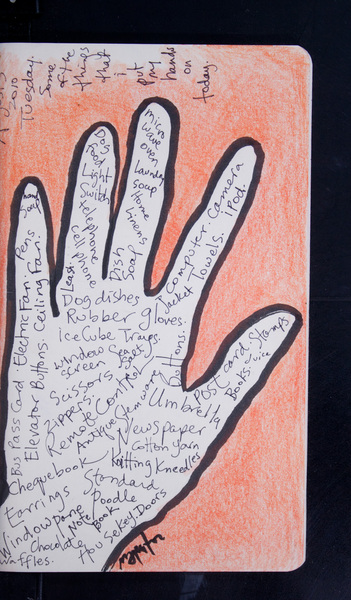 2010
Tuesday.
Some
of the
things
that
i
put
my
hands
on
today.
Bus Pass Card Electric Fan Pens
Elevator Buttons. Ceiling Fan.
Dog Food Light Switch telephone
Leash Cell phone
Microwave oven Laundry Soap Home Linens
Dish Soap
Computer Camera
Jacket Towels. iPod.
Dog dishes
Rubber gloves.
ice Cube Trays.
Window
Screen
Scissors
Zippers.
Remote Control
Buttons.
Antique Stemware
Umbrella
Post Card Stamps
Books. Juice
Newspaper
Cotton Yarn
Knitting Kneedles
Chequebook
Earrings
Standard
Poodle
Window Pane
Note
Book
Chocolate
House Key. Doors
Waffles.